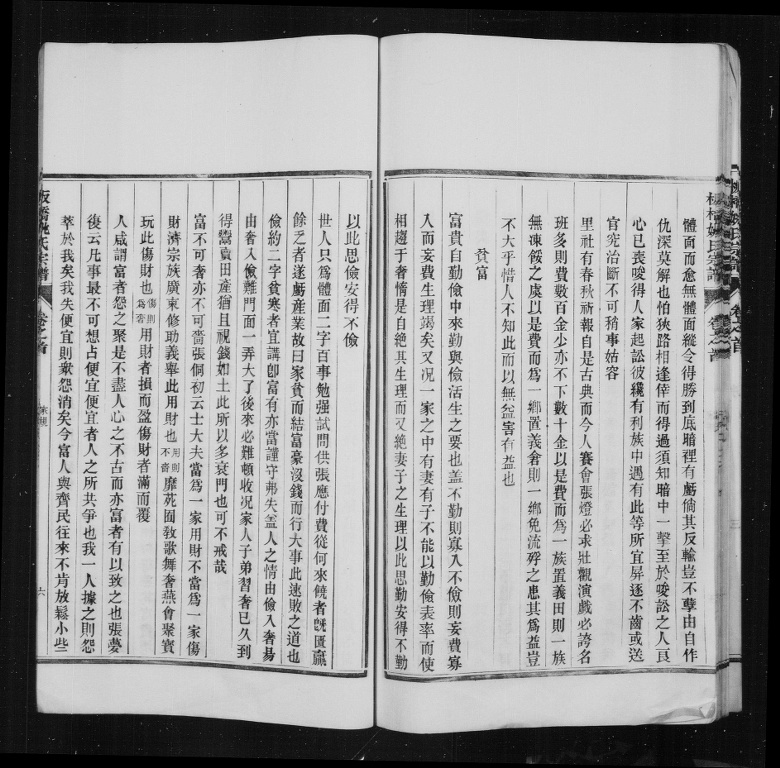 體面而愈無體面縱令得勝到底暗裡有虧倘其反輸豈不孽由自作
仇深莫解也怕狹路相逢倖而得過須知暗中一擊至於唆訟之人良
心已喪唆得人家起訟彼纔有利族中遇有此等所宜屏逐不齒或送
官究治斷不可稍事姑容
里社有春秋祈報自是古典而今人賽會張燈必求壯觀演戲必誇名
班多則費數百金少亦不下數十金以是費而爲一族置義田則一族
無凍餒之虞以是費而爲一鄉置義倉則一鄉免流殍之患其爲益豈
不大乎惜人不知此而以無益害有益也
貧富
富貴自勤儉中來勤與儉活生之要也盖不勤則寡入不儉則妄費寡
入而妄費生理竭矣又况一家之中有妻有子不能以勤儉表率而使
相趨于奢惰是自絶其生理而又絶妻子之生理以此思勤安得不勤
以此思儉安得不儉
世人只爲體面二字百事勉强試問供張應付費從何來饒者旣匱贏
餘乏者遂虧産業故曰家貧而結富豪沒錢而行大事此速敗之道也
儉約二字貧寒者宜講卽富有亦當謹守弗失盖人之情由儉入奢易
由奢入儉難門面一弄大了後來必難頓收况家人子弟習奢已久到
得鬻賣田産猶且視錢如土此所以多衰門也可不戒哉
富不可奢亦不可嗇張侗初云士大夫當爲一家用財不當爲一家傷
財濟宗族廣束修助義舉此用財也用則不嗇靡苑囿敎歌舞奢燕會聚寳
玩此傷財也傷則爲奢用財者損而盈傷財者滿而覆
人咸謂富者怨之聚是不盡人心之不古而亦富者有以致之也張夢
復云凡事最不可想占便宜便宜者人之所共爭也我一人據之則怨
萃於我矣我失便宜則衆怨消矣今富人與齊民往來不肯放鬆小些
板橋姚氏宗譜
卷之首
家規
六